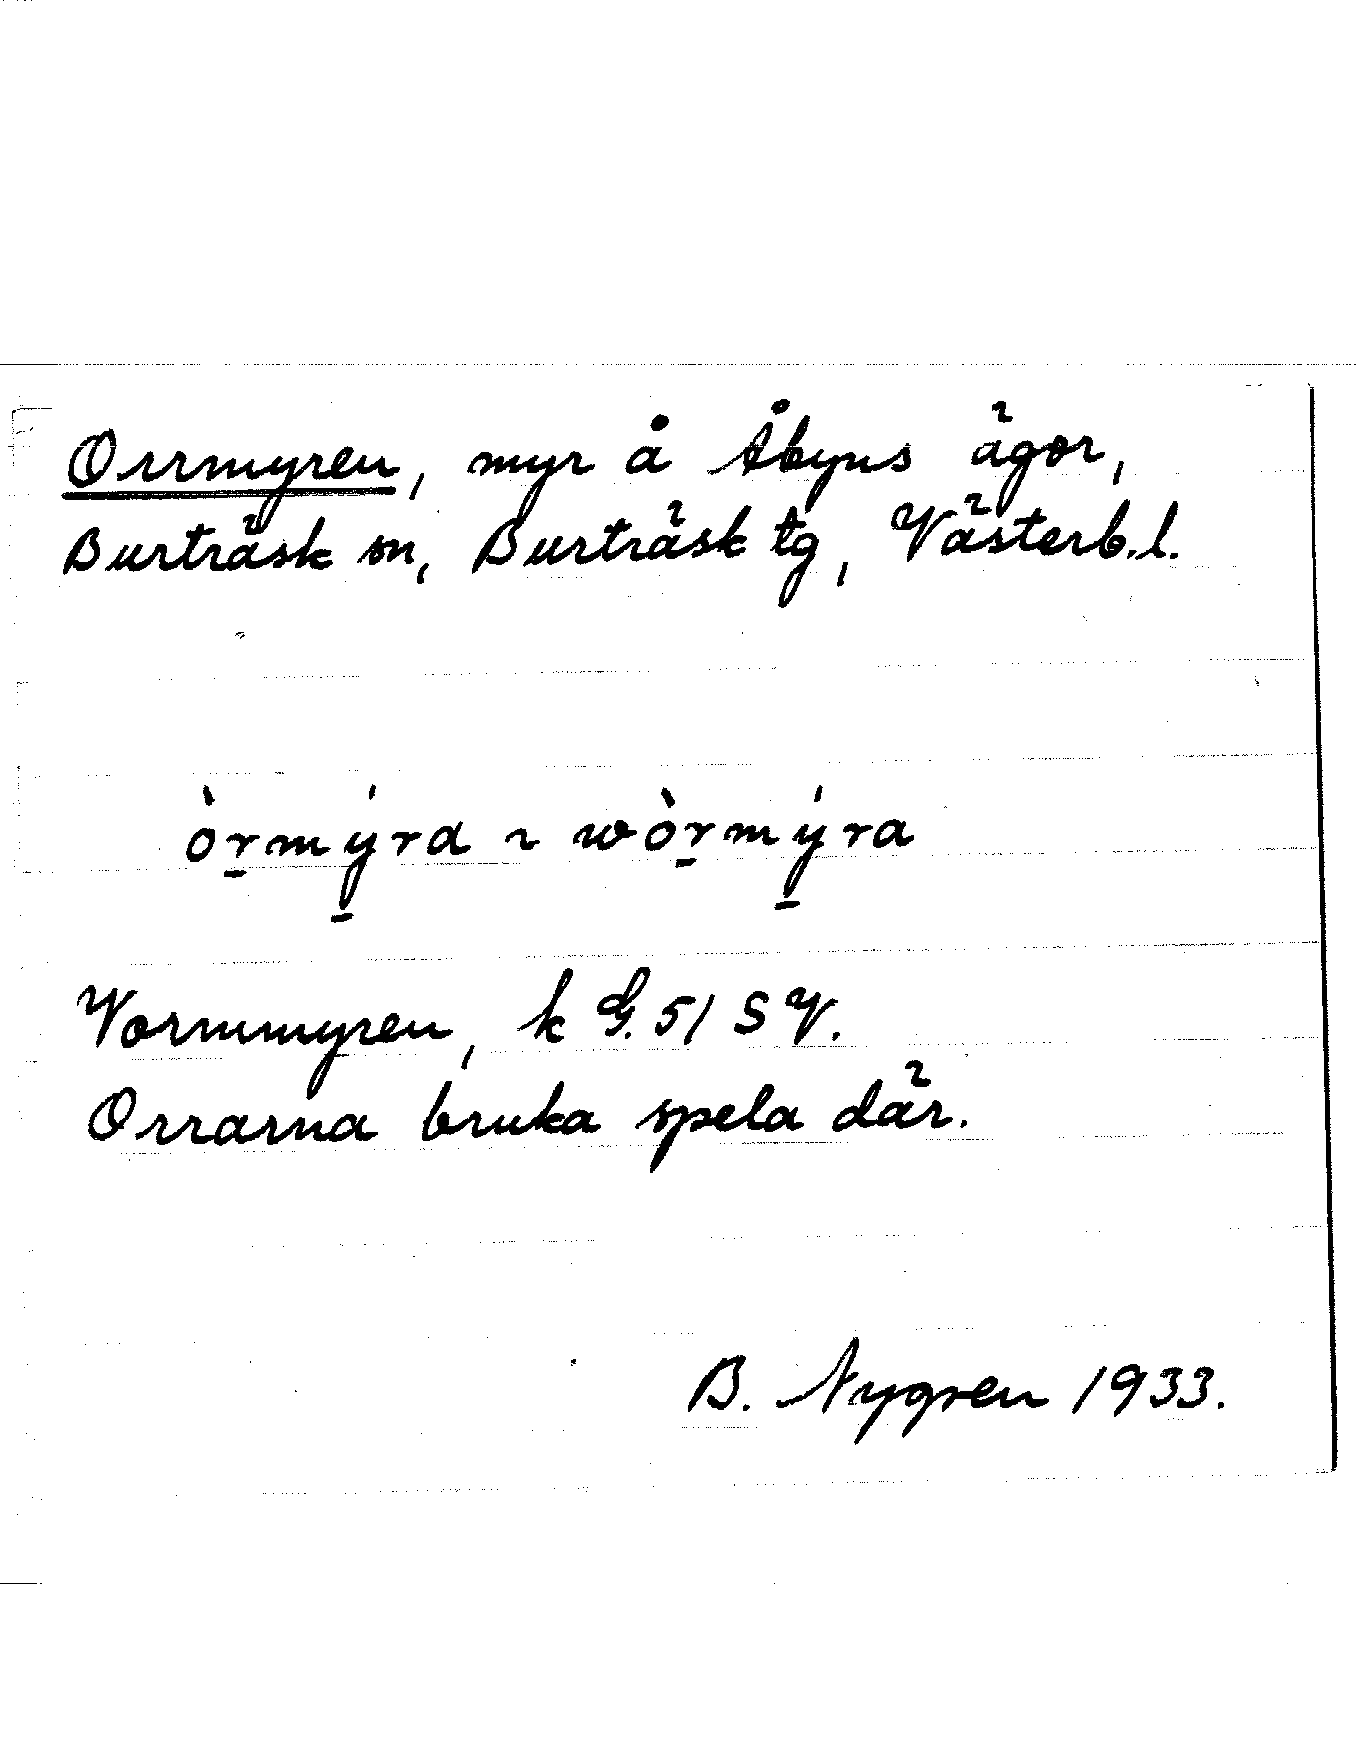 Orrmyren, myr å Åbyns ägor,
Burträsk sn, Burträsk tg, Västerb.l.
òr̲mý̲ra ~ wòr̲mý̲ra
Vormmyren, k G. 51 S V.
Orrarna bruka spela där.
B. Nygren 1933.